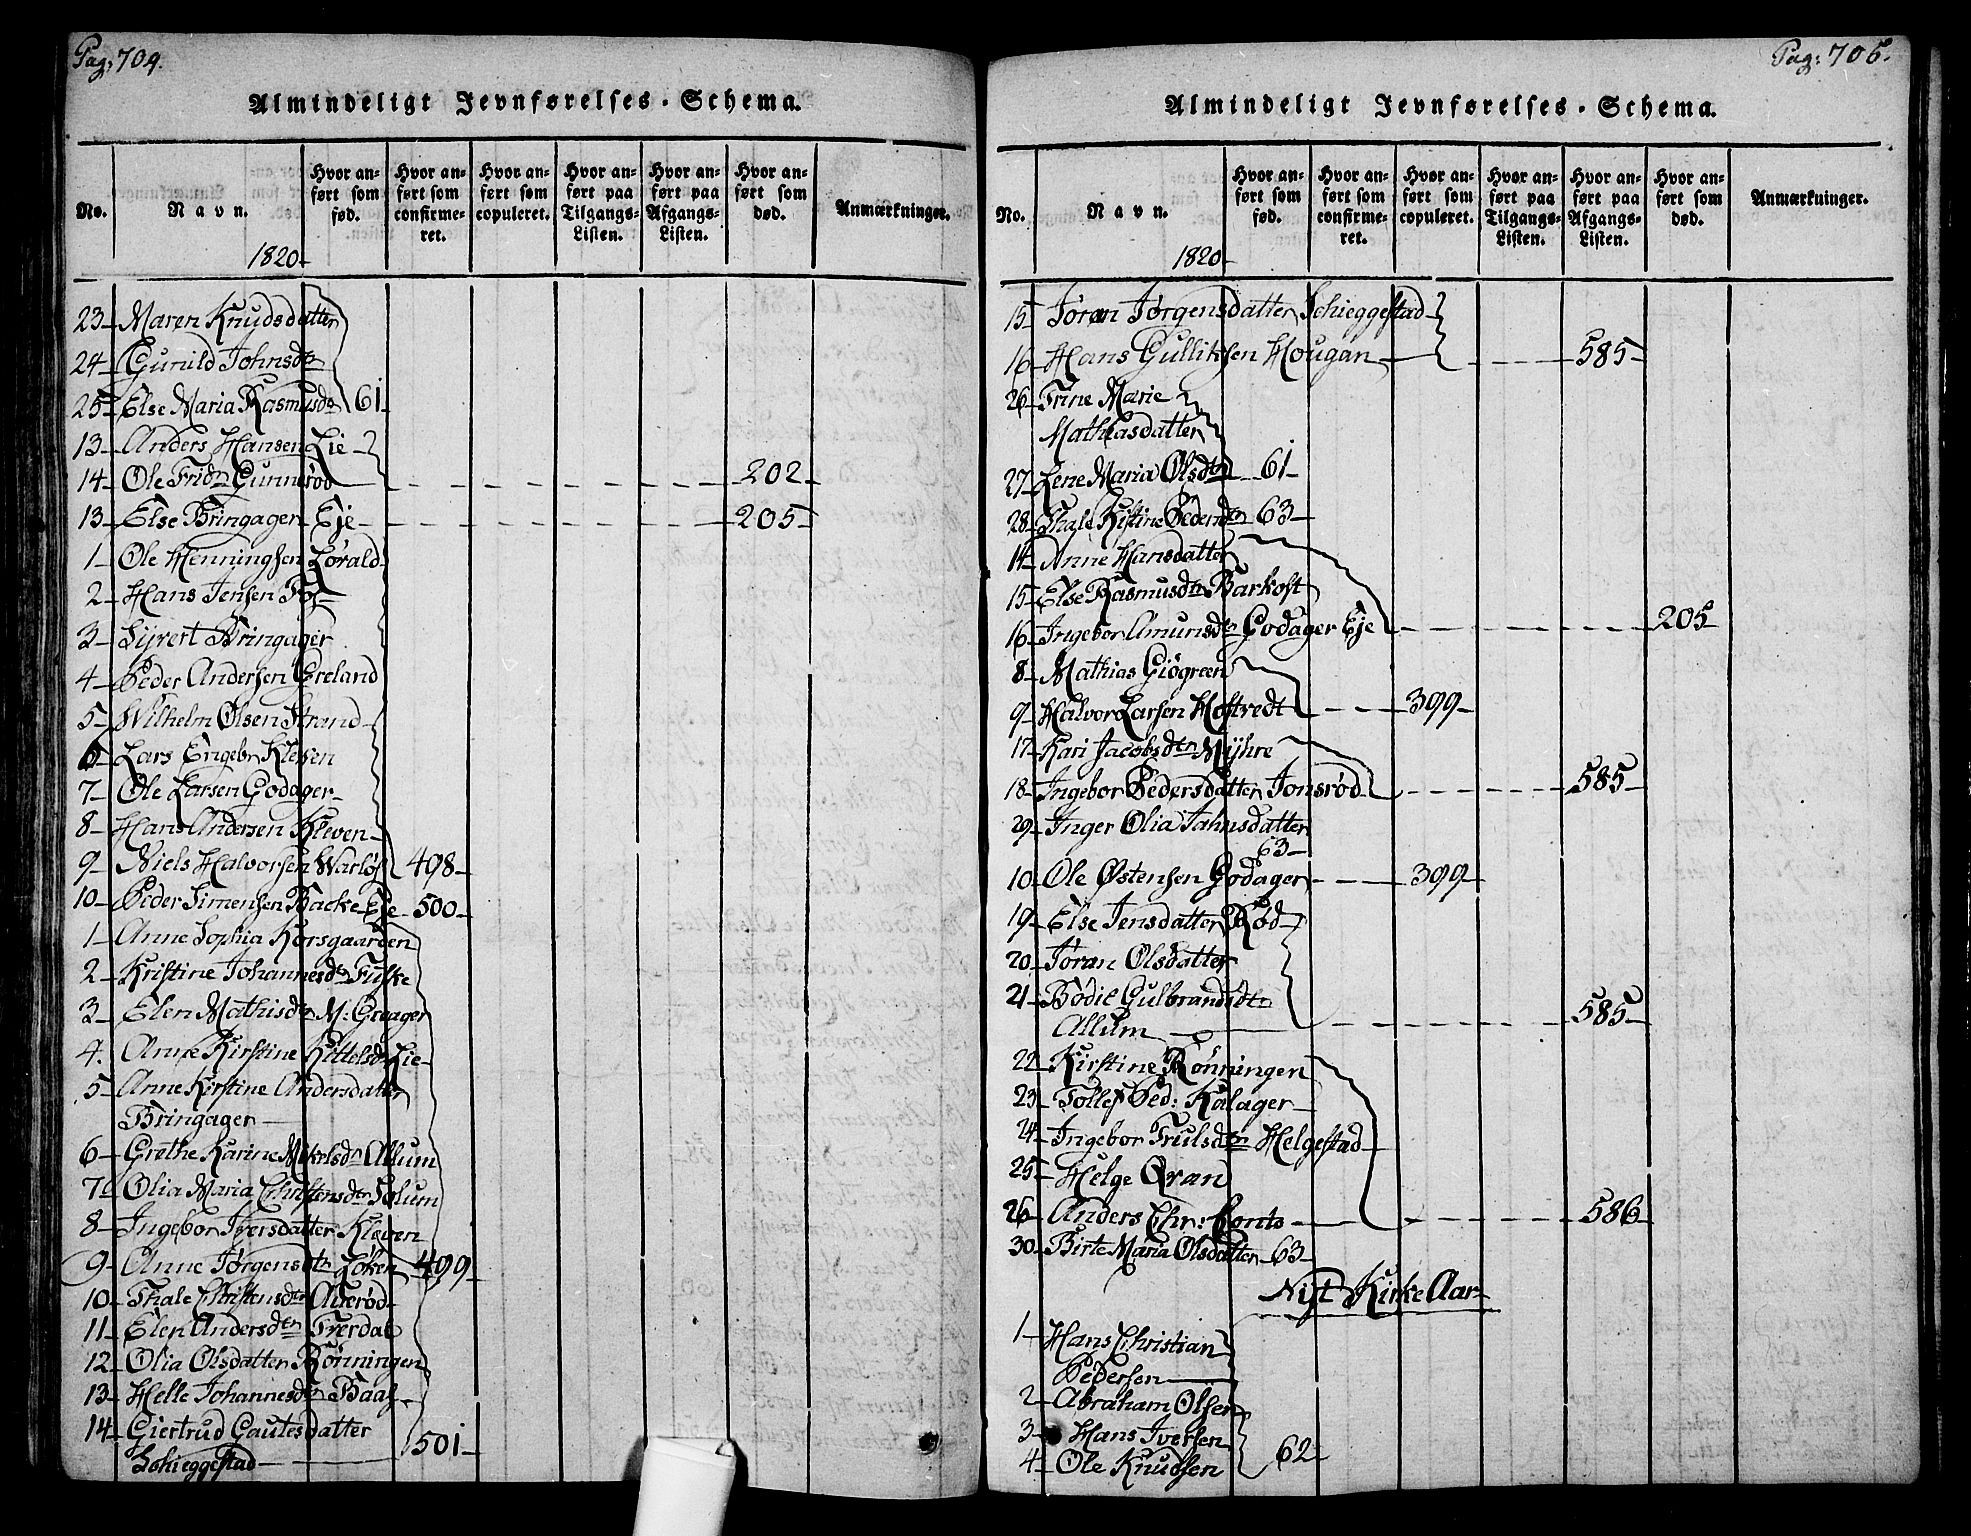 Pag: 704.
Almindeligt Jevnførelses-Schema.
No.
Navn.
Hvor anført som fød.
Hvor anført som confirmeret.
Hvor anført som copuleret.
Hvor anført paa Tilgangs-Listen.
Hvor anført paa Afgangs-Listen.
Hvor anført som død.
Anmærkninger.
1820
23 Maren Knudsdatter
24 Gunild Johnsdtr
25 Else Maria Rasmusdr 61
13 Anders Hansen Lie
14 Ole Fridr Gunnerød 202
13 Else Bringager Eje 205
1 Ole Henningsen Lørald
2 Hans Jensen
3 Syvert Bringager
4 Peder Andersen Greland
5 Wilhelm Olsen Strand
6 Lars Engebr Klefsen
7 Ole Larsen Godager
8 Hans Andersen Kleven
9 Niels Halvorsen 498
10 Peder Simensen Backe Eje 500
1 Anne Sophia Korsgaarden
2 Kristine Johannesdr Fuske
3 Elen Mathisdr M: Greager
4. Anne Kirstine Kittelsdr Lie
5 Anne Kirstine Andersdatter
Bringager
6 Grethe Karine Allum
7 Olia Maria Christensdtr Solum
8 Ingebor Iversdatter Kleven
9 Anne Jørgensdtr Løken 499
10 Thale Christensdtr Auerød
11 Elen Andersdtr Fverdal
12 Olia Olsdatter Rønningen
13 Helle Johannesdr Baas
14 Giertrud Gautesdatter
Schieggestad 501
Pag: 705.
Almindeligt Jevnførelses-Schema.
No.
Navn.
Hvor anført som fød.
Hvor anført som confirmeret.
Hvor anført som copuleret.
Hvor anført paa Tilgangs-Listen.
Hvor anført paa Afgangs-Listen.
Hvor anført som død.
Anmærkninger.
1820
15 Jøran Jørgensdatter Schieggestad
16 Hans Gulliksen Hougan 585
26 Trine Marie
Mathiasdatter
27 Lene Maria Olsdtr 61
28 Thale Kistine Pedersdtr 63
14 Anne Hansdatter
15 Else Rasmusdtr Barkost
16 Ingebor Amunsdtr Godager Eje 205
8 Mathias Giøgreen
9 Halvor Larsen Hoftvedt 399
17 Kari Jacobsdtr Myhre
18 Ingebor Pedersdatter Jonsrød 585
29 Inger Olia Jahnsdatter
63
10 Ole Østensen Godager 399
19 Else Jensdatter Rød
20 Jøran Olsdatter
21 Bodil Gulbrandsdtr
Allum 585
22 Kirstine Rønningen
23 Tollef Ped: Kalager
24 Ingebor Trulsdtr Helgestad
25 Helge Qvan
26 Anders Chr: 586
30 Birte Maria Olsdatter 63
Nyt Kirke Aar
1 Hans Christian
Pedersen
2 Abraham Olsen
3 Hans Iversen 62
4 Ole Knudsen